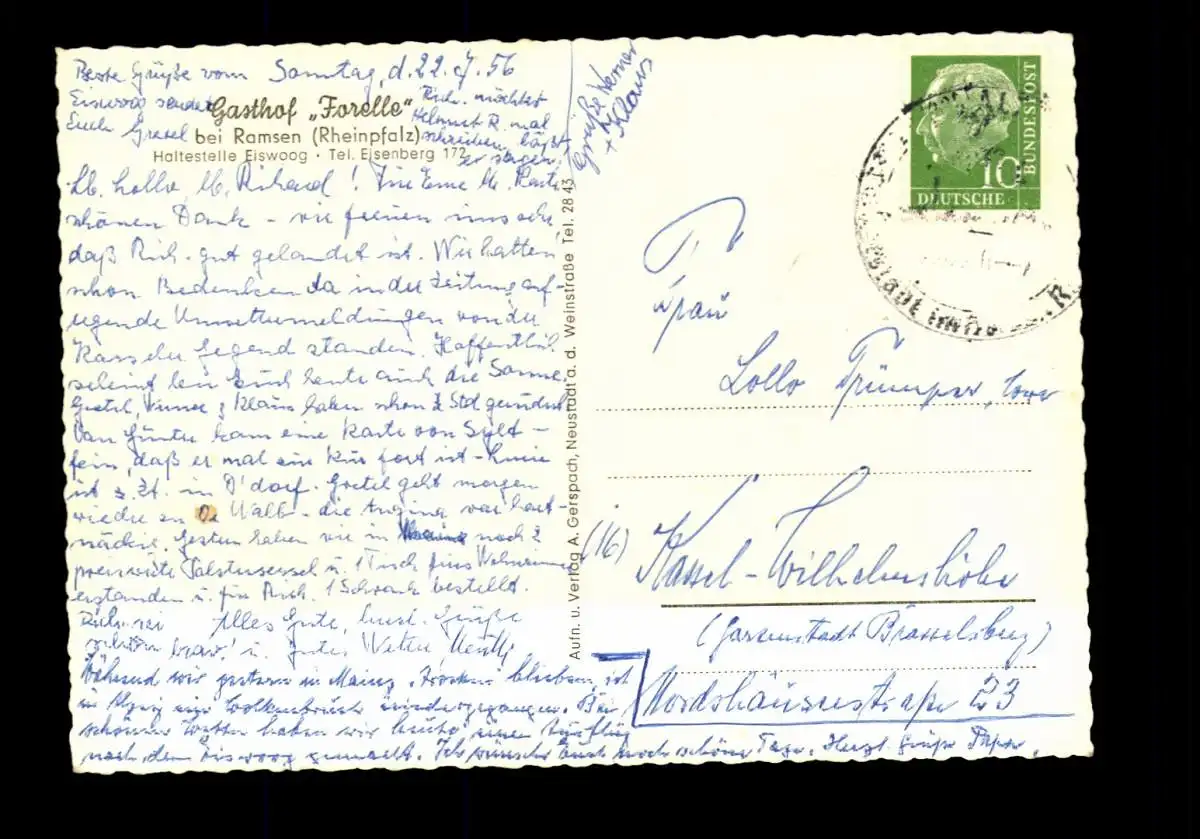 Beste Grüße vom
Eiswoog sendet
Euch Gretel
Sonntag, d. 22.7.56
Gasthof „Forelle"
bei Ramsen (Rheinpfalz)
Haltestelle Eiswoog · Tel. Eisenberg 172
Rich. möchte
Helmut R. mal
schreiben, läßt
er sagen.
Grüße Werner
+ Klaus
Lb. Lollo, lb. Richard! Für Eure lb. Karte
schönen Dank – wir freuen uns sehr
daß Rich. gut gelandet ist. Wir hatten
schon Bedenken da in der Zeitung auf-
regende Unwettermeldungen von der
Kasseler Gegend standen. Hoffentlich
scheint bei Euch heute auch die Sonne,
Gretel, Werner & Klaus haben schon 2 Std gerudert
Von Günter kam eine Karte von Sylt –
fein, daß er mal ein
ist z. Zt. in D'dorf. Gretel geht morgen
wieder zu Walb – die Angina war hart-
näckig. Gestern haben wir in Mainz noch 2
preiswerte Polstersessel u. 1 Tisch fürs Wohnzimmer
erstanden u. für Rich. 1 Schrank bestellt.
Rich. sei Alles Gute, herzl. Grüße
schön brav! u. gutes Wetter
Während wir gestern in Mainz trocken blieben, ist
in Alzey ein Wolkenbruch niedergegangen. Bei
schönem Wetter haben wir heute einen Ausflug
nach dem Eiswoog gemacht. Ich wünsche Euch noch schöne Tage. Herzl. Grüße Papa.
Aufn. u. Verlag A. Gerspach, Neustadt a. d. Weinstraße Tel. 28 43
10
DEUTSCHE
BUNDESPOST
Frau
Lollo Trümper,
(16) Kassel-Wilhelmshöhe
(Gartenstadt Brasselsberg)
Nordshäuserstraße 23